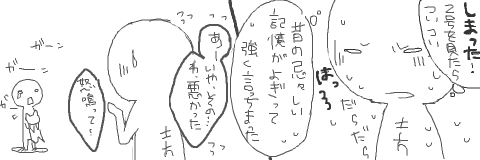 しまった！
２号を見たら
ついつい
昔の忌々しい
記憶がよぎって
強く言っちまった
はっ
だらだら
士方
あ…いや、その…
わ、悪かった
怒鳴って〜
士方
ガーン
ガーン
ガ